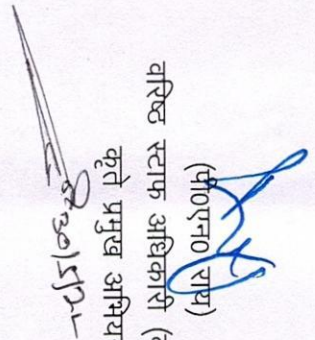 (पी०एन० राय)
वरिष्ठ स्टाफ अधिकारी (
कृते प्रमुख अभिय